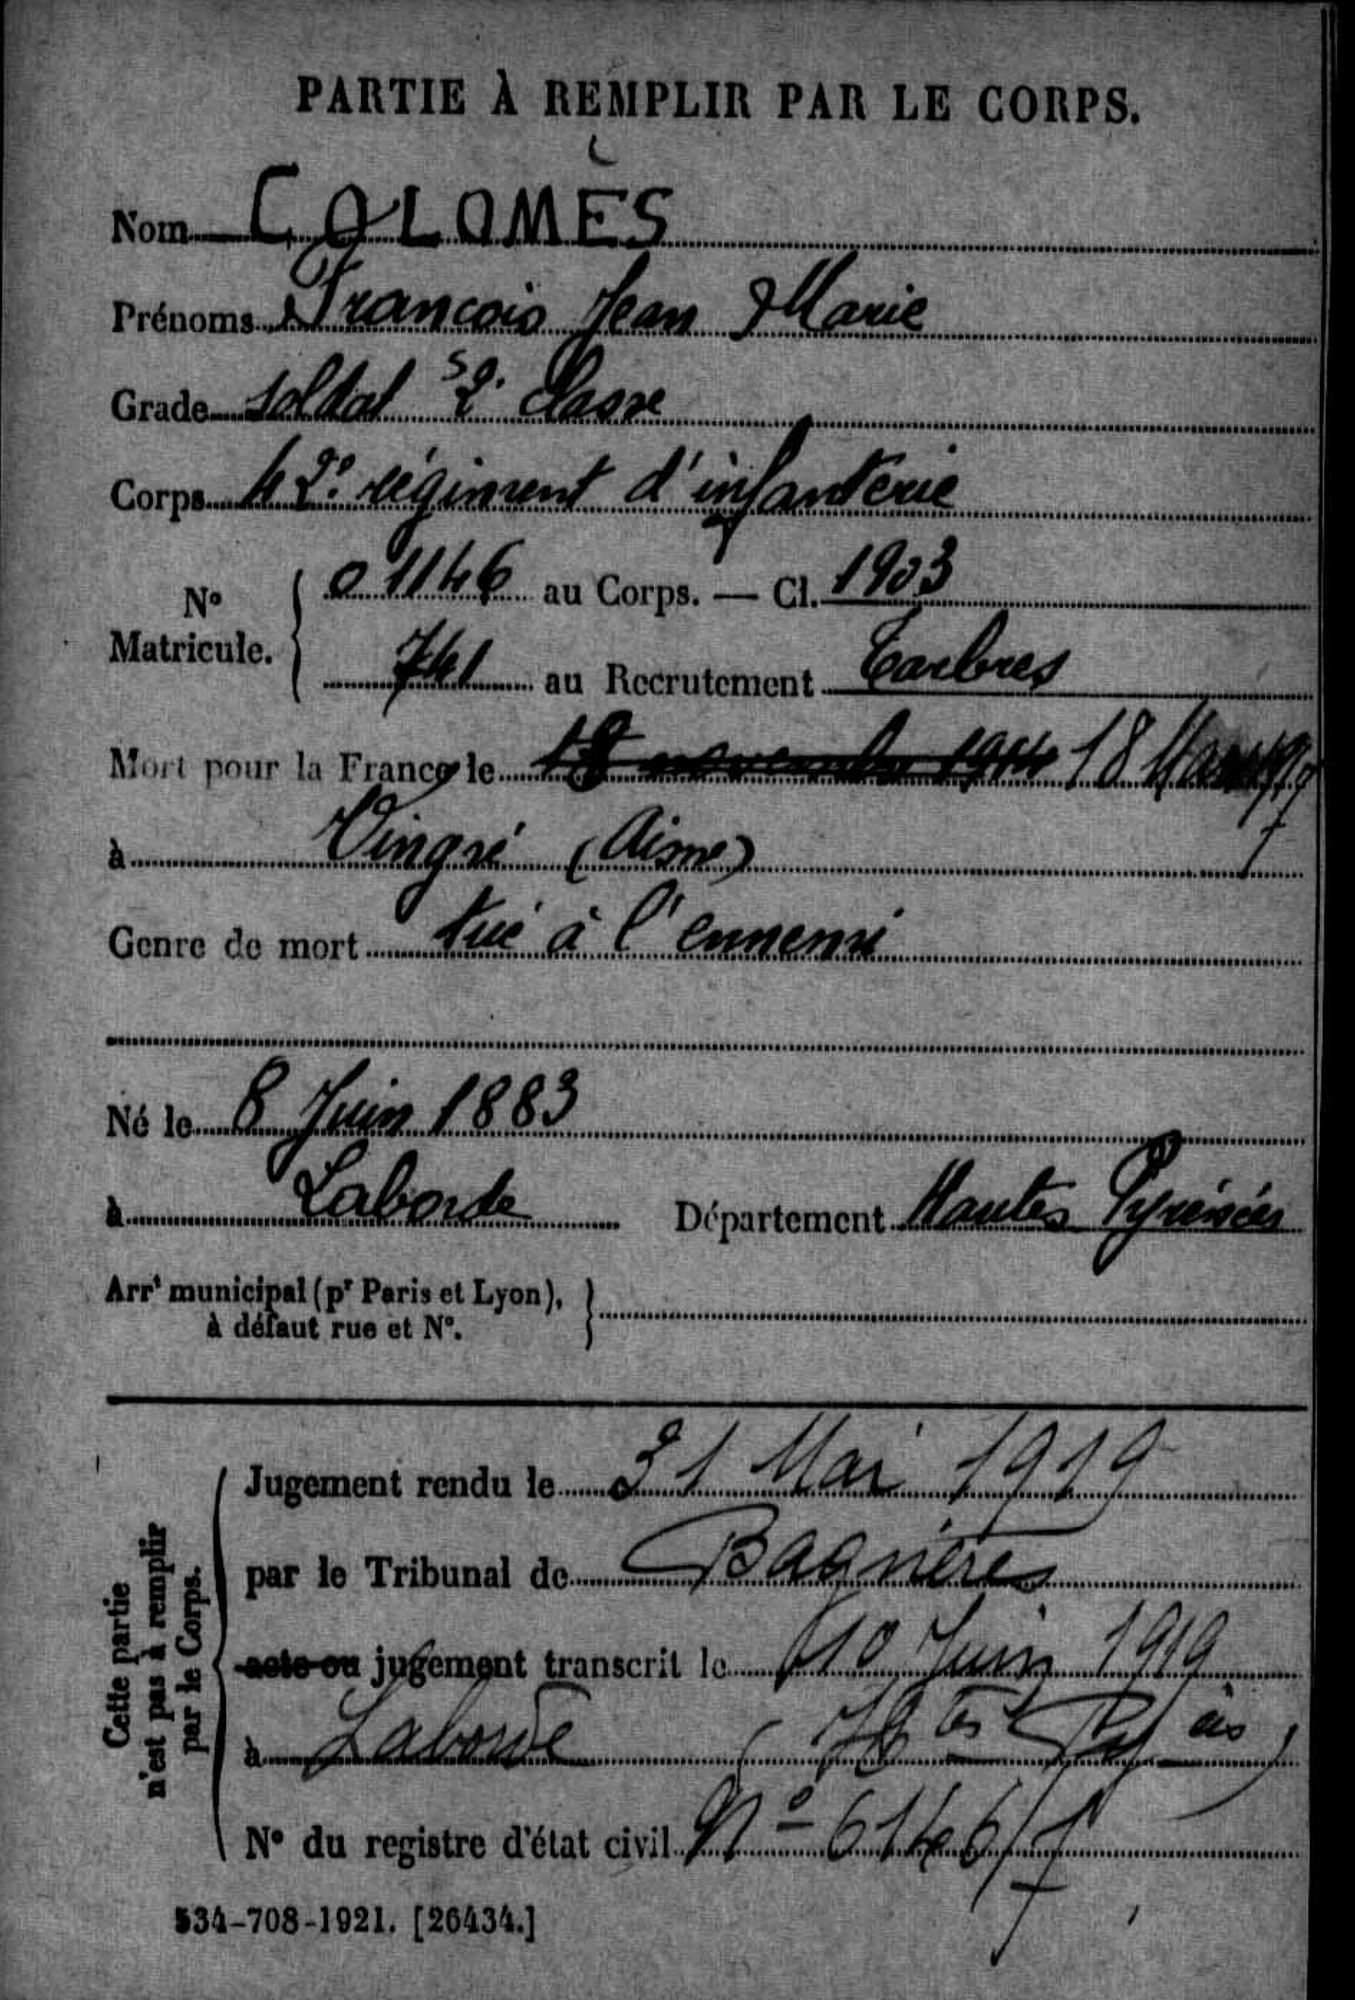 PARTIE À REMPLIR PAR LE CORPS.
Nom COLOMÈS
Prénoms François Jean Marie
Grade soldat 2e classe
Corps 42e régiment d'infanterie
No Matricule. 01146 au Corps. — Cl. 1903
741 au Recrutement Tarbes
Mort pour la France le 18 novembre 1914 18
à Vingré (Aisne)
Genre de mort tué à l'ennemi
Né le 8 Juin 1883
à Laborde Département Hautes Pyrénées
Arrt municipal (pr Paris et Lyon),
à défaut rue et No.
Cette partie
n'est pas à remplir
par le Corps.
Jugement rendu le 31 Mai 1919
par le Tribunal de Bagnères
acte ou jugement transcrit le 10 Juin 1919
à Laborde (Htes Pyrées)
No du registre d'état civil No 6146/7
534-708-1921. [26434.]